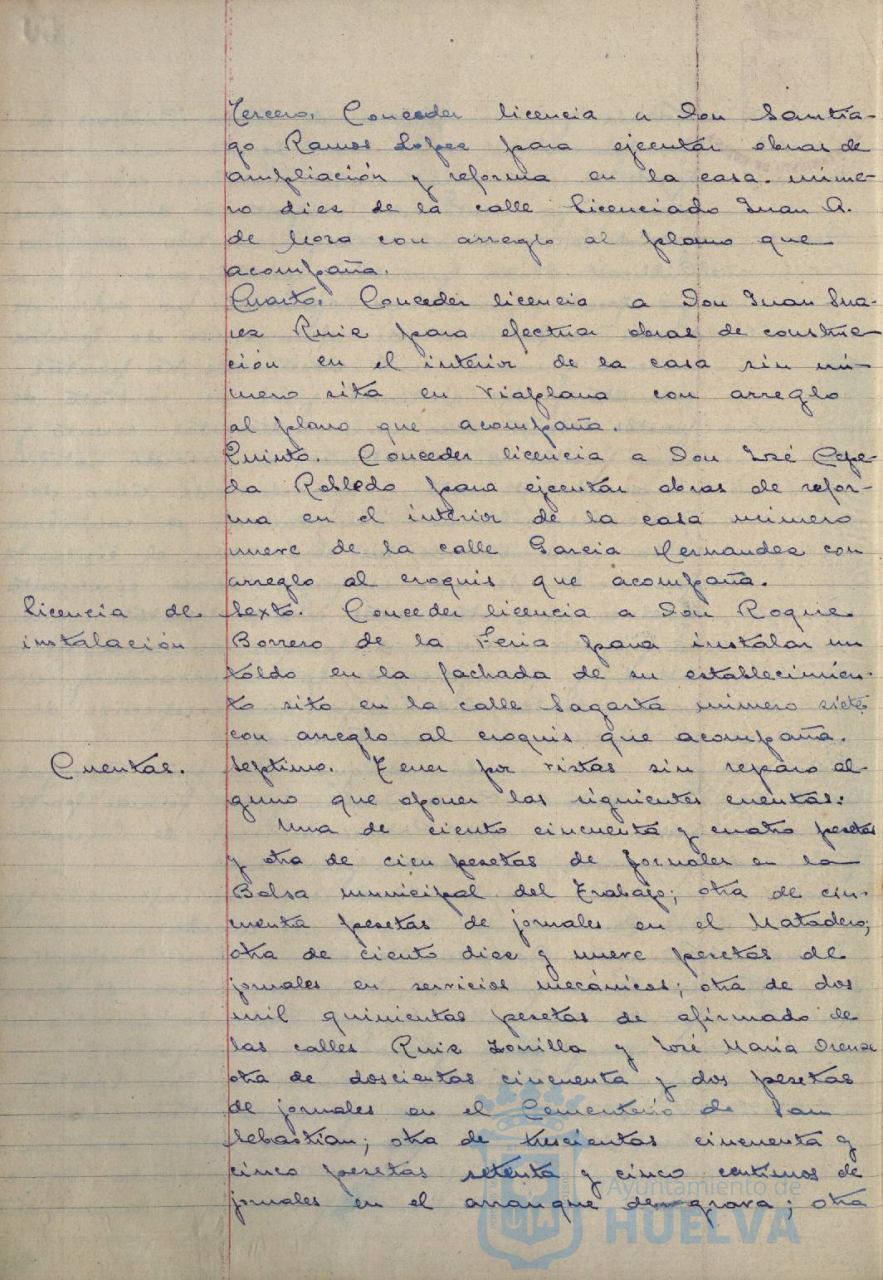 Tercero. Conceder licencia a Don Santia-
go Ramos Lopez para ejecutar obras de
ampliación y reforma en la casa numе-
ro diez de la calle Licenciado Juan A.
de Mora con arreglo al plano que
acompaña.
Cuarto. Conceder licencia a Don Juan Sua-
rez Ruiz para efectuar obras de construc-
ción en el interior de la casa sin nú-
mero sita en Viaplana con arreglo
al plano que acompaña.
Quinto. Conceder licencia a Don José Cepe-
da Robledo para ejecutar obras de refor-
ma en el interior de la casa número
nueve de la calle Garcia Hernandez con
arreglo al croquis que acompaña.
Licencia de
instalación
Sexto. Conceder licencia a Don Roque
Borrero de la Feria para instalar un
toldo en la fachada de su establecimien-
to sito en la calle Sagasta número siete
con arreglo al croquis que acompaña.
Cuentas.
Septimo. Tener por vistas sin reparo al-
guno que oponer las siguientes cuentas:
Una de ciento cincuenta y cuatro pesetas
y otra de cien pesetas de jornales en la
Bolsa municipal del Trabajo; otra de cin-
cuenta pesetas de jornales en el Matadero;
otra de ciento diez y nueve pesetas de
jornales en servicios mecánicos; otra de dos
mil quinientas pesetas de afirmado de
las calles Ruiz Zorrilla y José María Orense
otra de doscientas cincuenta y dos pesetas
de jornales en el Cementerio de San
Sebastian; otra de trescientas cincuenta y
cinco pesetas setenta y cinco centimos de
jornales en el arranque de grava; otra
Ayuntamiento de
HUELVA